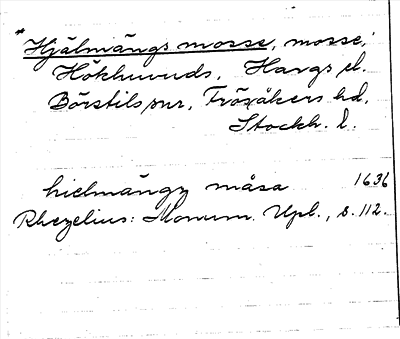 *Hjälmängs mosse, mosse,
Hökhuvuds, Hargs el.
Börstils snr, Frösåkers hd,
Stockh. l.
hielmängz måsa 1636
Rhezelius: Monum. Upl., s. 112.